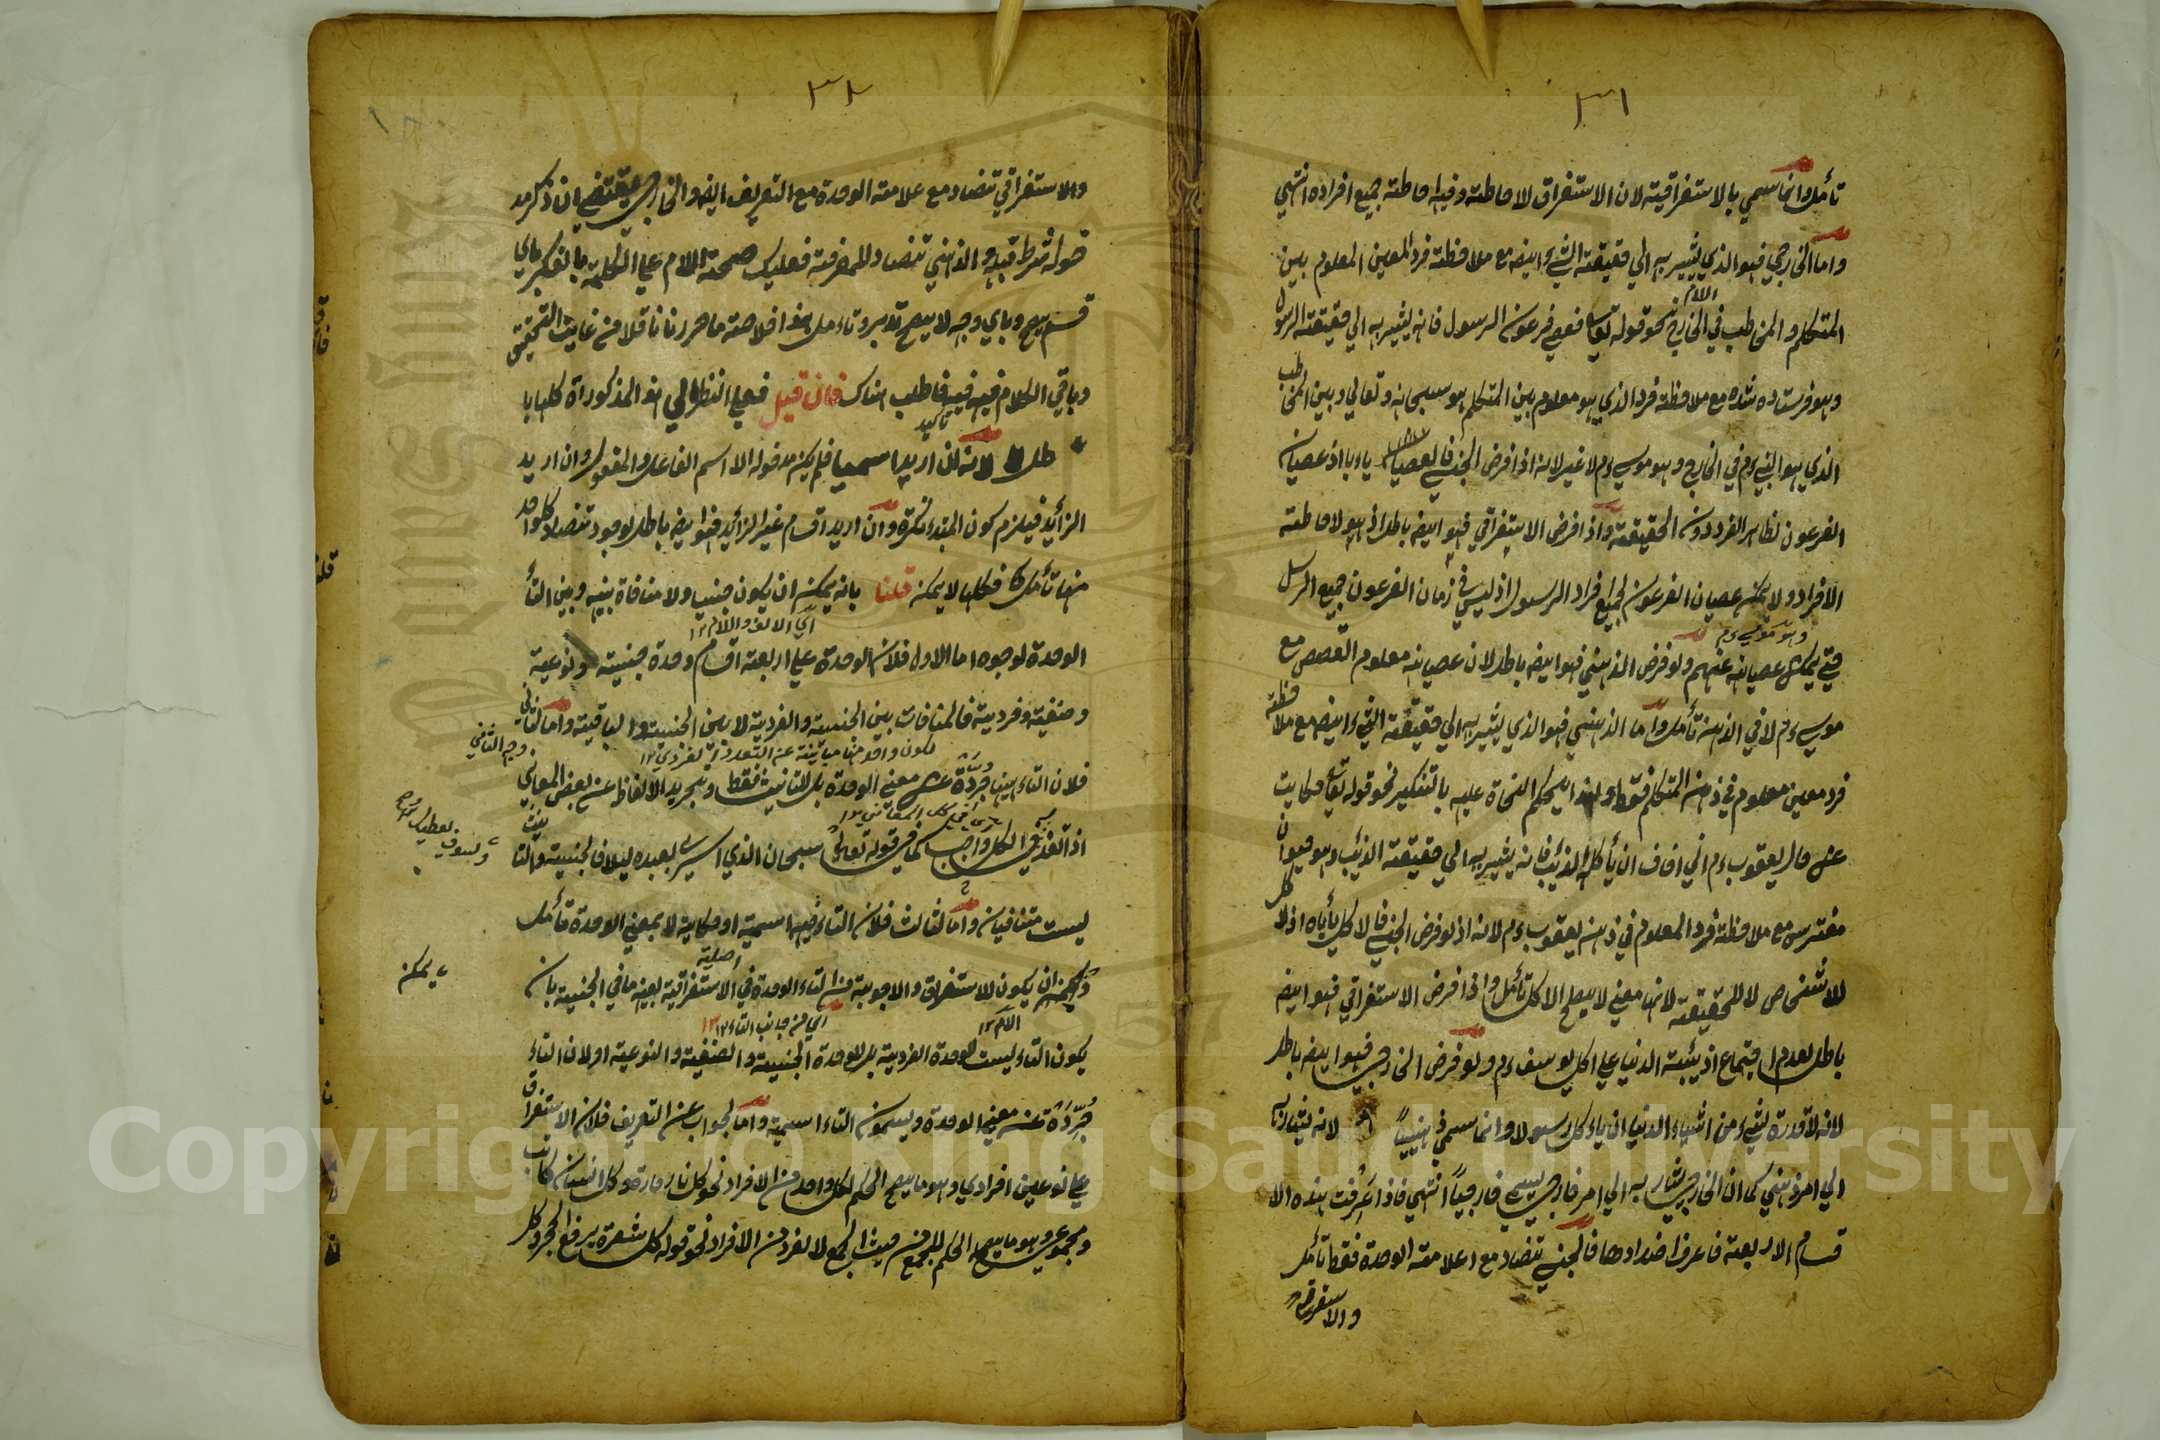 ٣١
تأمل وانما سمي بالاستغراقية لان الاستغراق لاحاطة وفيها احاطة جميع افراده انتهي
واما الخارجي فهو الذي يشير به الي حقيقة الشيء ايضا مع ملاحظة فرد المعين المعلوم بين
اللام
المتكلم والمخاطب في الخارج نحو قوله تعا فعصي فرعون الرسول فانه يشير به الي حقيقة الرسول
وهو فرستاده شده مع ملاحظة فرد الذي هو معلوم بين المتكلم هو سبحانه وتعالي وبين المخاطب
الذي هو النبي ءم في الخارج وهو موسي ءم لا غير لانه اذا فرض الجنسي فالعصيان ياباه اذ عصيان
الفرعون لظاهر الفرد دون الحقيقة واذا فرض الاستغراقي فهو ايضا باطل اذ هو لاحاطة
الافراد ولا يمكن عصيان الفرعون لجميع افراد الرسول اذ ليس في زمان الفرعون جميع الرسل
وهو موسي ءم
حتي يمكن عصيانه عنهم ولو فرض الذهني فهو ايضا باطل لان عصيانه معلوم القصص مع
موسي ءم لا في الذهن تأمل واما الذهني فهو الذي يشير به الي حقيقة الشيء ايضا مع ملاحظة
فرد معين معلوم في ذهن المتكلم فقط ولهذا يحكم النحاة عليه بالتنكير نحو قوله تعا حكايت
عن حال يعقوب ءم اني اخاف ان يأكله الذئب فانه يشير به الي حقيقة الذئب وهو حيوان
مفترس مع ملاحظة فرد المعلوم في ذهن يعقوب ءم لانه اذ لو فرض الجنسي فالاكل يأباه اذ الاكل
للاشخاص لا للحقيقة لانها معني لا يصلح الاكل تأمل واذا فرض الاستغراقي فهو ايضا
باطل لعدم اجتماع اذيئبة الدنيا علي اكل يوسف ءم ولو فرض الخارجي فهو ايضا باطل
لانه لا قدرة لشيء من اشياء الدنيا ان ياءكل رسولا وانما سمي ذهنيياً لانه يشار به
الي امر ذهني كما ان الخارجي يشار به الي امر خارجي يسمي خارجياً انتهي فاذا عرفت هذه الا
قسام الاربعة فاعرف اضدادها فالجنسي تتضاد مع اعلامة الوحدة فقط تأمل
والاستغراقي
٣٢
والاستغراقي تتضاد مع علامة الوحدة مع التعريف ايضا والخارجي يقتضي ان ذكر مد
خوله شرط قبله والذهني تتضاد للمعرفة فعليك صحة اللام علي الكلمة بالفكر باي
قسم يصح وباي وجه لا يصح تدبر وتاءمل هذا خلاصة ما حررنا ناقلا من غايت التحقيق
وباقي الكلام فيه فيه فاطلب هناك فان قيل فعلي النظر الي هذ المذكوراة كلها با
تاكيد
طل لانه ان اريد اسميا فلم يكن مدخوله الا اسم الفاعل والمفعول وان اريد
الزائد فيلزم كون المبتدء نكرة وان اريد اقسام غير الزائد فهو ايضا باطل لوجود تتضاد كلواحد
منها تأمل فكلها لا يمكن قلنا بانه يمكن ان يكون جنسيا ولا منافاة بينه وبين التاء
اي الالف واللام ١٢
الوحدة لوجوه اما الاول فلان الوحدة علي اربعة اقسام وحدة جنسية ونوعية
وصنفية وفردية فالمنافات بين الجنسية والفردية لا بين الجنسية والباقية واما الثاني
وجه الثاني
فلان التاء هنا جردة عن معني الوحدة بل للتانيث فقط وتجريد الالفاظ عن بعض المعاني
اذا تعذر في الكل واجب كما في قوله تعالي سبحان الذي اسري بعبده ليلا فالجنسية والتا نيث
ولسوف يعطيك
ليست متنافيان واما الثالث فلان التاء فيها اسمية او حكاية لا بمعني الوحدة تأمل
اصلية
ء يمكن
ويمكن ان يكون للاستغراق والاجوبة من التاء الوحدة في الاستغراقية بعينه ما في الجنسية بان
اللام ١٢
اي من جانب التاء ١٢
يكون التاء ليست للوحدة الفردية بل للوحدة الجنسية والصنفية والنوعية او لان التاء
جردة عن معني الوحدة ويسمون التاء اسمية واما الجواب عن التعريف فلان الاستغراق
علي نوعين افرادي وهو ما يصح الحكم لكل واحد من الافراد نحو كل نار حار وكل انسان كاتب
ومجموعي وهو ما يصح الحكم للجمع من حيث الجمع لا لفرد من الافراد نحو قوله كل شعرة يرفع الحجر وكل